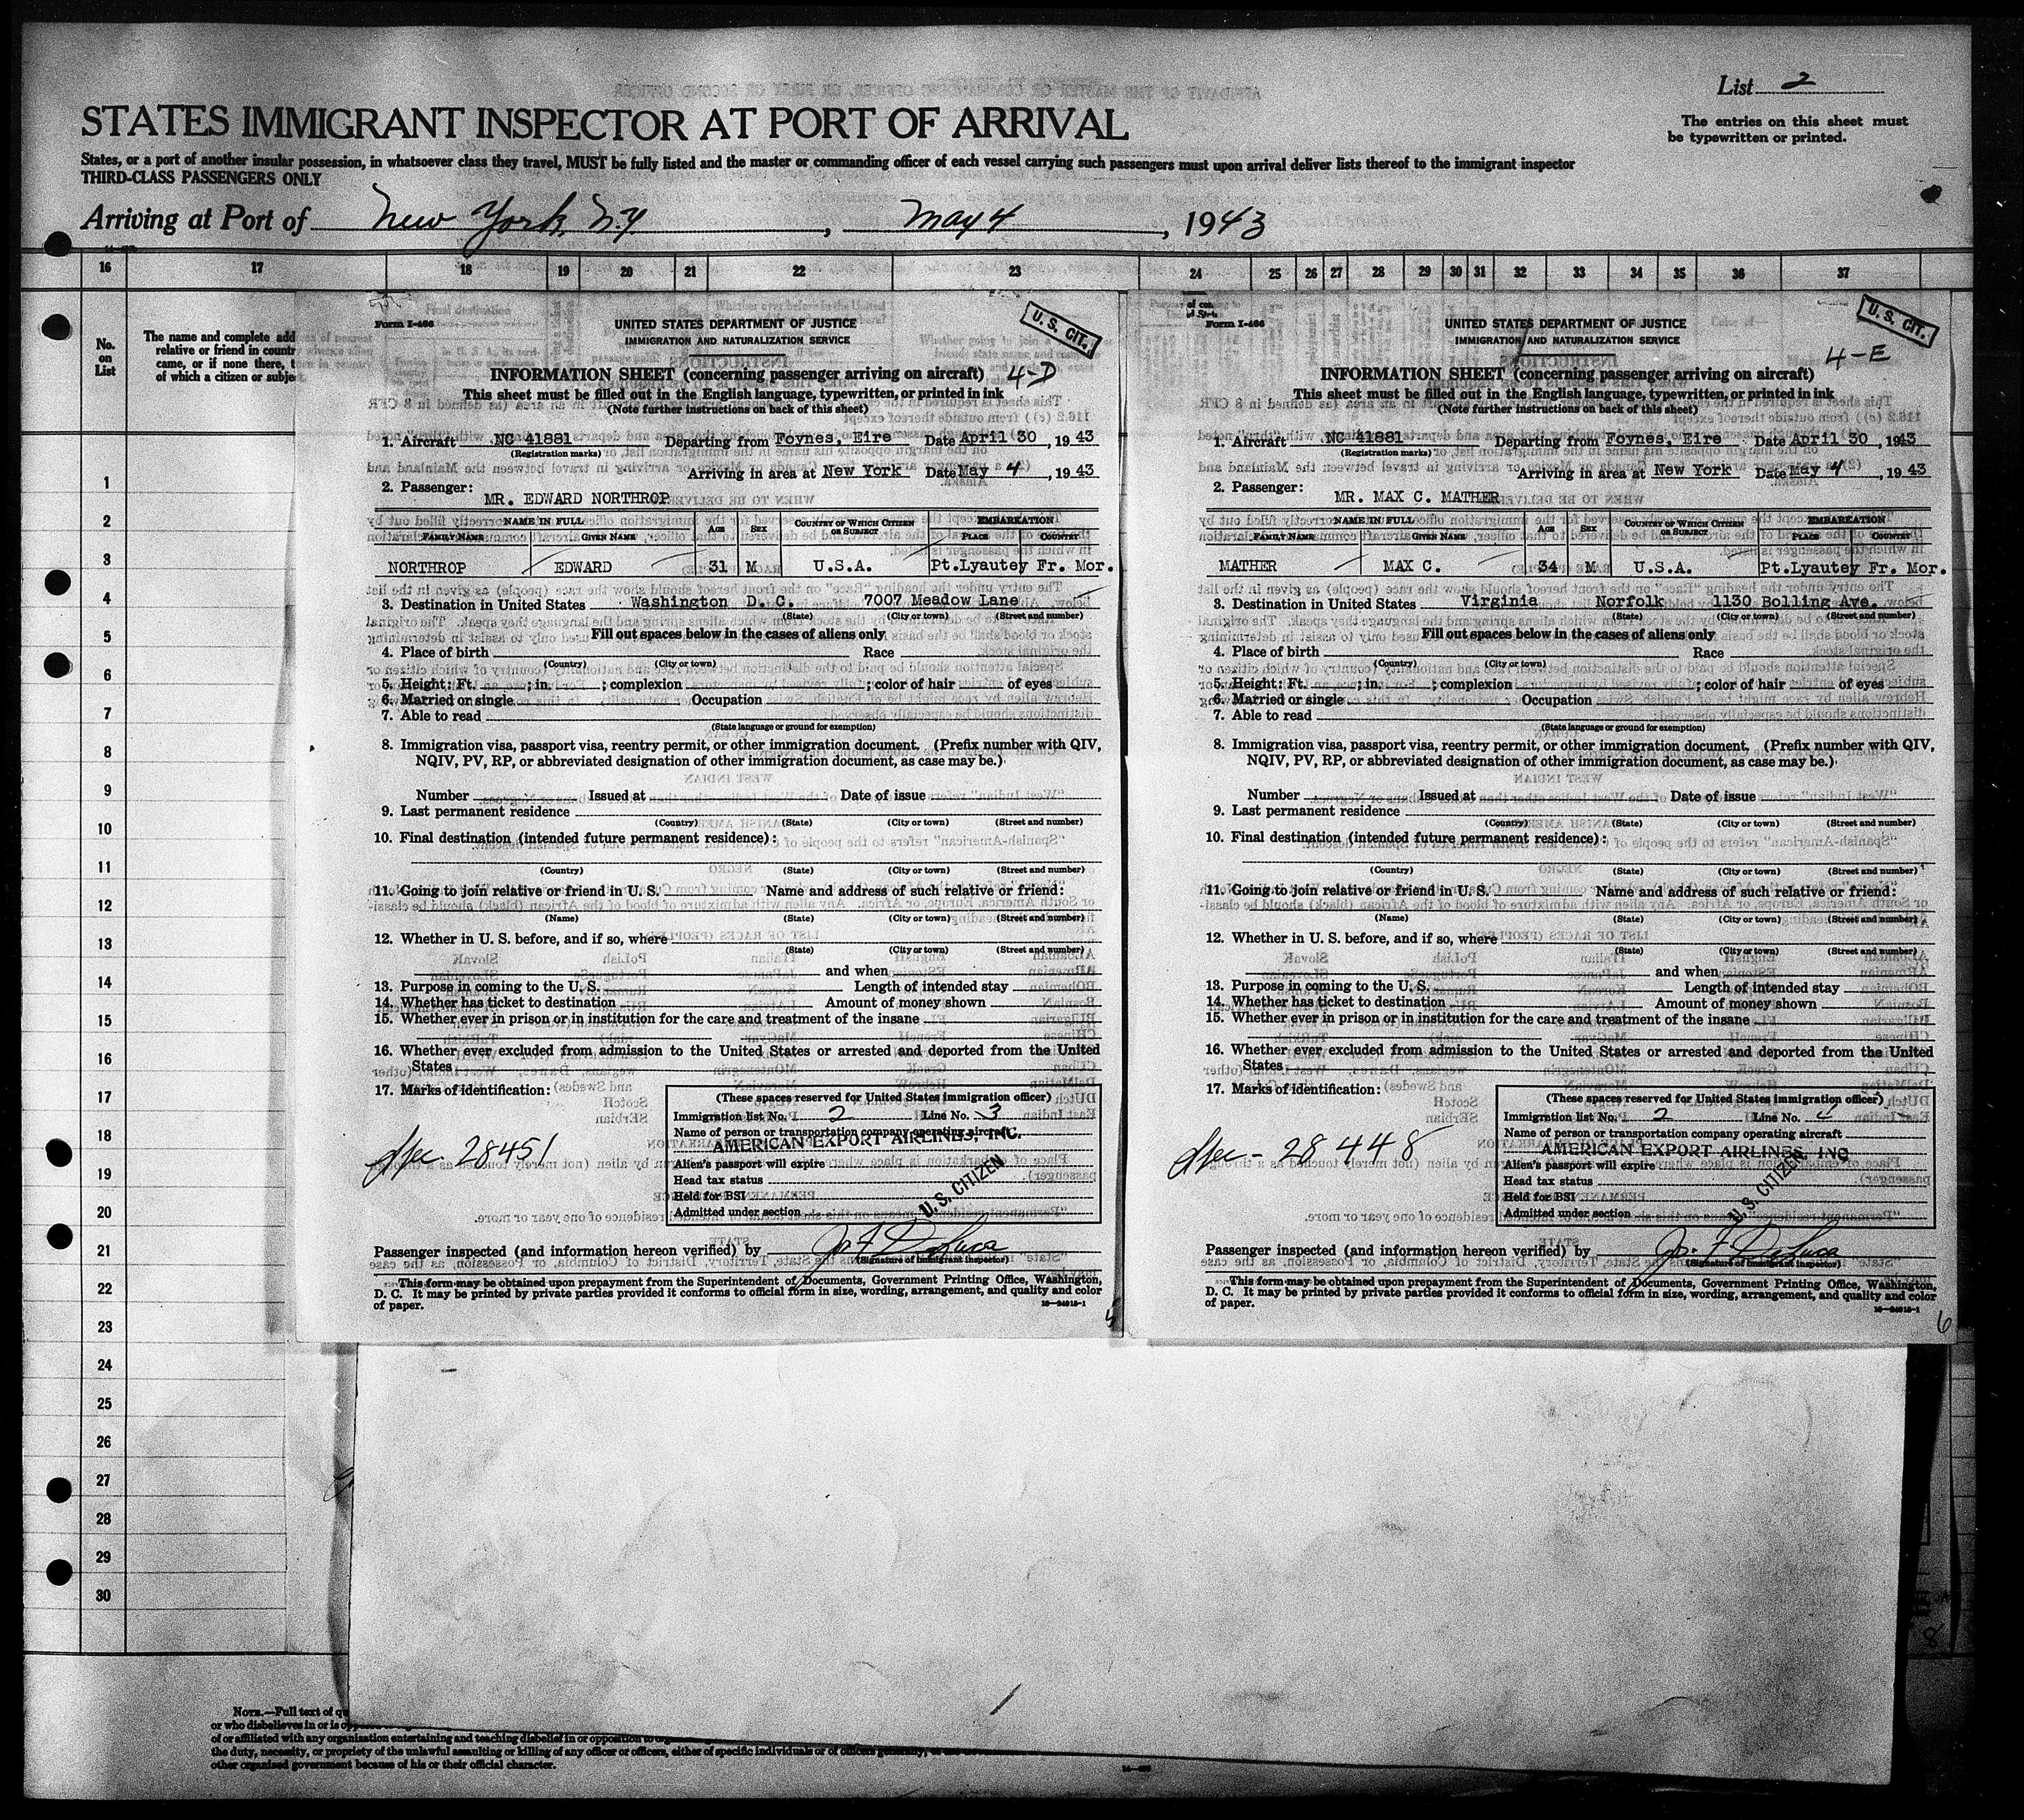 List 2
STATES IMMIGRANT INSPECTOR AT PORT OF ARRIVAL
The entries on this sheet must
be typewritten or printed.
States, or a port of another insular possession, in whatsoever class they travel, MUST be fully listed and the master or commanding officer of each vessel carrying such passengers must upon arrival deliver lists thereof to the immigrant inspector
THIRD-CLASS PASSENGERS ONLY
Arriving at Port of New York, N.Y. , May 4 , 1943
16 17 18 19 20 21 22 23 24 25 26 27 28 29 30 31 32 33 34 35 36 37
No.
on
List
The name and complete add
relative or friend in countr
came, or if none there, t
of which a citizen or subje
1
2
3
4
5
6
7
8
9
10
11
12
13
14
15
16
17
18
19
20
21
22
23
24
25
26
27
28
29
30
Form I-466
UNITED STATES DEPARTMENT OF JUSTICE
IMMIGRATION AND NATURALIZATION SERVICE
U. S. CIT.
INFORMATION SHEET (concerning passenger arriving on aircraft) 4-D
This sheet must be filled out in the English language, typewritten, or printed in ink
(Note further instructions on back of this sheet)
1. Aircraft NC 41881 Departing from Foynes, Eire Date April 30, 1943
(Registration marks)
Arriving in area at New York Date May 4, 1943
2. Passenger: MR. EDWARD NORTHROP
NAME IN FULL AGE SEX COUNTRY OF WHICH CITIZEN OR SUBJECT EMBARKATION
FAMILY NAME GIVEN NAME PLACE COUNTRY
NORTHROP EDWARD 31 M U.S.A. Pt.Lyautey Fr. Mor.
3. Destination in United States Washington D. C. 7007 Meadow Lane
(State) (City or town) (Street and number)
Fill out spaces below in the cases of aliens only
4. Place of birth Race
(Country) (City or town)
5. Height: Ft. ; in. ; complexion ; color of hair of eyes
6. Married or single Occupation
7. Able to read
(State language or ground for exemption)
8. Immigration visa, passport visa, reentry permit, or other immigration document. (Prefix number with QIV,
NQIV, PV, RP, or abbreviated designation of other immigration document, as case may be.)
Number Issued at Date of issue
9. Last permanent residence
(Country) (State) (City or town) (Street and number)
10. Final destination (intended future permanent residence):
(Country) (State) (City or town) (Street and number)
11. Going to join relative or friend in U. S. Name and address of such relative or friend:
(Name) (State) (City or town) (Street and number)
12. Whether in U. S. before, and if so, where
(State) (City or town) (Street and number)
and when
13. Purpose in coming to the U. S. Length of intended stay
14. Whether has ticket to destination Amount of money shown
15. Whether ever in prison or in institution for the care and treatment of the insane
16. Whether ever excluded from admission to the United States or arrested and deported from the United
States
17. Marks of identification:
(These spaces reserved for United States immigration officer)
Immigration list No. 2 Line No. 3
Name of person or transportation company operating aircraft
AMERICAN EXPORT AIRLINES, INC.
28451
Alien's passport will expire
Head tax status
Held for BSI
Admitted under section
U. S. CITIZEN
Passenger inspected (and information hereon verified) by Jo. F. DeLuca
(Signature of immigrant inspector)
This form may be obtained upon prepayment from the Superintendent of Documents, Government Printing Office, Washington,
D. C. It may be printed by private parties provided it conforms to official form in size, wording, arrangement, and quality and color
of paper.
16—24918-1
5
Form I-466
UNITED STATES DEPARTMENT OF JUSTICE
IMMIGRATION AND NATURALIZATION SERVICE
U. S. CIT.
4-E
INFORMATION SHEET (concerning passenger arriving on aircraft)
This sheet must be filled out in the English language, typewritten, or printed in ink
(Note further instructions on back of this sheet)
1. Aircraft NC 41881 Departing from Foynes, Eire Date April 30, 1943
(Registration marks)
Arriving in area at New York Date May 4, 1943
2. Passenger: MR. MAX C. MATHER
NAME IN FULL AGE SEX COUNTRY OF WHICH CITIZEN OR SUBJECT EMBARKATION
FAMILY NAME GIVEN NAME PLACE COUNTRY
MATHER MAX C. 34 M U.S.A. Pt.Lyautey Fr. Mor.
3. Destination in United States Virginia Norfolk 1130 Bolling Ave.
(State) (City or town) (Street and number)
Fill out spaces below in the cases of aliens only
4. Place of birth Race
(Country) (City or town)
5. Height: Ft. ; in. ; complexion ; color of hair of eyes
6. Married or single Occupation
7. Able to read
(State language or ground for exemption)
8. Immigration visa, passport visa, reentry permit, or other immigration document. (Prefix number with QIV,
NQIV, PV, RP, or abbreviated designation of other immigration document, as case may be.)
Number Issued at Date of issue
9. Last permanent residence
(Country) (State) (City or town) (Street and number)
10. Final destination (intended future permanent residence):
(Country) (State) (City or town) (Street and number)
11. Going to join relative or friend in U. S. Name and address of such relative or friend:
(Name) (State) (City or town) (Street and number)
12. Whether in U. S. before, and if so, where
(State) (City or town) (Street and number)
and when
13. Purpose in coming to the U. S. Length of intended stay
14. Whether has ticket to destination Amount of money shown
15. Whether ever in prison or in institution for the care and treatment of the insane
16. Whether ever excluded from admission to the United States or arrested and deported from the United
States
17. Marks of identification:
(These spaces reserved for United States immigration officer)
Immigration list No. 2 Line No. 4
Name of person or transportation company operating aircraft
AMERICAN EXPORT AIRLINES, INC
28448
Alien's passport will expire
Head tax status
Held for BSI
Admitted under section
U. S. CITIZEN
Passenger inspected (and information hereon verified) by Jo. F. DeLuca
(Signature of immigrant inspector)
This form may be obtained upon prepayment from the Superintendent of Documents, Government Printing Office, Washington,
D. C. It may be printed by private parties provided it conforms to official form in size, wording, arrangement, and quality and color
of paper.
16—24918-1
6
8
NOTE.—Full text of qu
or who disbelieves in or is
of or affiliated with any organization entertaining and teaching disbelief in or opposition to
the duty, necessity, or propriety of the unlawful assaulting or killing of any officer or officers, either of specific individuals or of officers generally,
other organised government because of his or their official character.